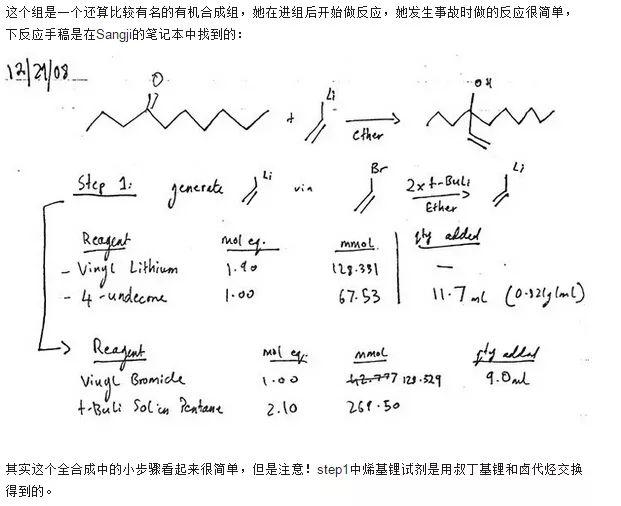 这个组是一个还算比较有名的有机合成组，她在进组后开始做反应，她发生事故时做的反应很简单，
下反应手稿是在Sangji的笔记本中找到的：
12/29/08
O
+
Li
Ether
OH
Step 1: generate Li via Br 2x t-BuLi Ether Li
Reagent mol eq. mmol qty added
- Vinyl Lithium 1.90 128.331 —
- 4-undecone 1.00 67.53 11.7 mL (0.821g/mL)
Reagent mol eq. mmol qty added
Vinyl Bromide 1.00 128.329 9.0ml
t-BuLi Sol'n in Pentane 2.10 269.50
其实这个全合成中的小步骤看起来很简单，但是注意！step1中烯基锂试剂是用叔丁基锂和卤代烃交换
得到的。